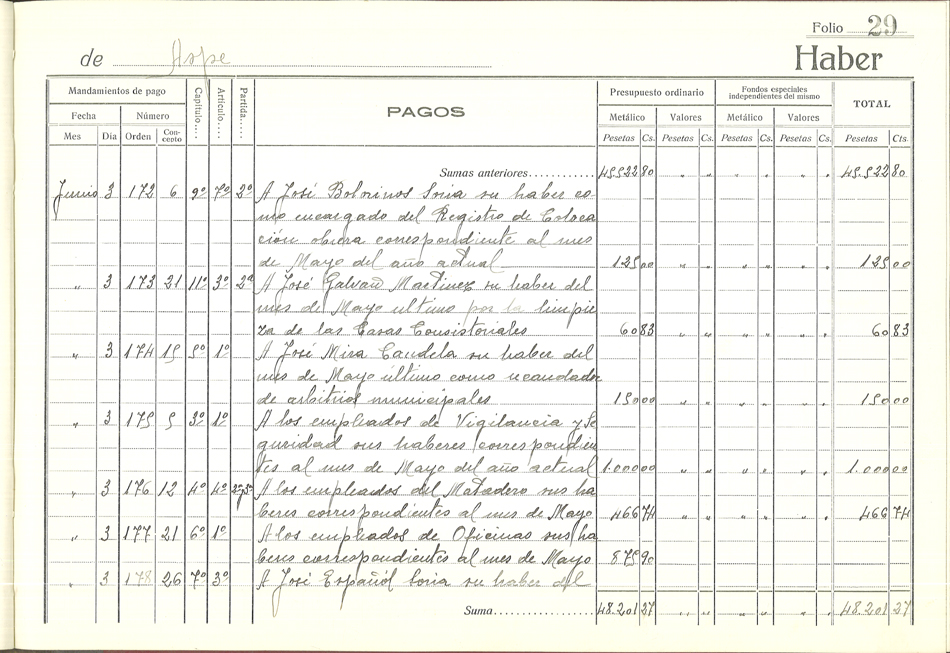 Folio 29
de Aspe
Haber
Mandamientos de pago
Fecha Número
Mes Día Orden Concepto
Capítulo.... Artículo.... Partida....
PAGOS
Presupuesto ordinario
Metálico Valores
Pesetas Cs. Pesetas Cs.
Fondos especiales independientes del mismo
Metálico Valores
Pesetas Cs. Pesetas Cs.
TOTAL
Pesetas Cts
Sumas anteriores............ 45522 80 " " " " " " 45.522 80
Junio 3 172 6 9º 7º 2º A José Botorinos Soria su haber co-
mo encargado del Registro de Coloca
ción obrera correspondiente al mes
de Mayo del año actual 125 00 " " " " " " 125 00
" 3 173 21 11º 3º 2º A José Galvañ Martinez su haber del
mes de Mayo ultimo por la limpie
za de las Casas Consistoriales 60 83 " " " " " " 60 83
" 3 174 15 5º 1º A José Mira Candela su haber del
mes de Mayo último como recaudador
de arbitrios municipales 150 00 " " " " " " 150 00
" 3 175 5 3º 1º A los empleados de Vigilancia y Se
guridad sus haberes correspondien
tes al mes de Mayo del año actual 1.000 00 " " " " " " 1.000 00
" 3 176 12 4º 4º 2º y 3º A los empleados del Matadero sus ha
beres correspondientes al mes de Mayo 466 74 " " " " " " 466 74
" 3 177 21 6º 1º A los empleados de Oficinas sus ha
beres correspondientes al mes de Mayo 875 90
" 3 178 26 7º 3º A José Español Soria su haber del
Suma................... 48.201 27 " " " " " " 48.201 27